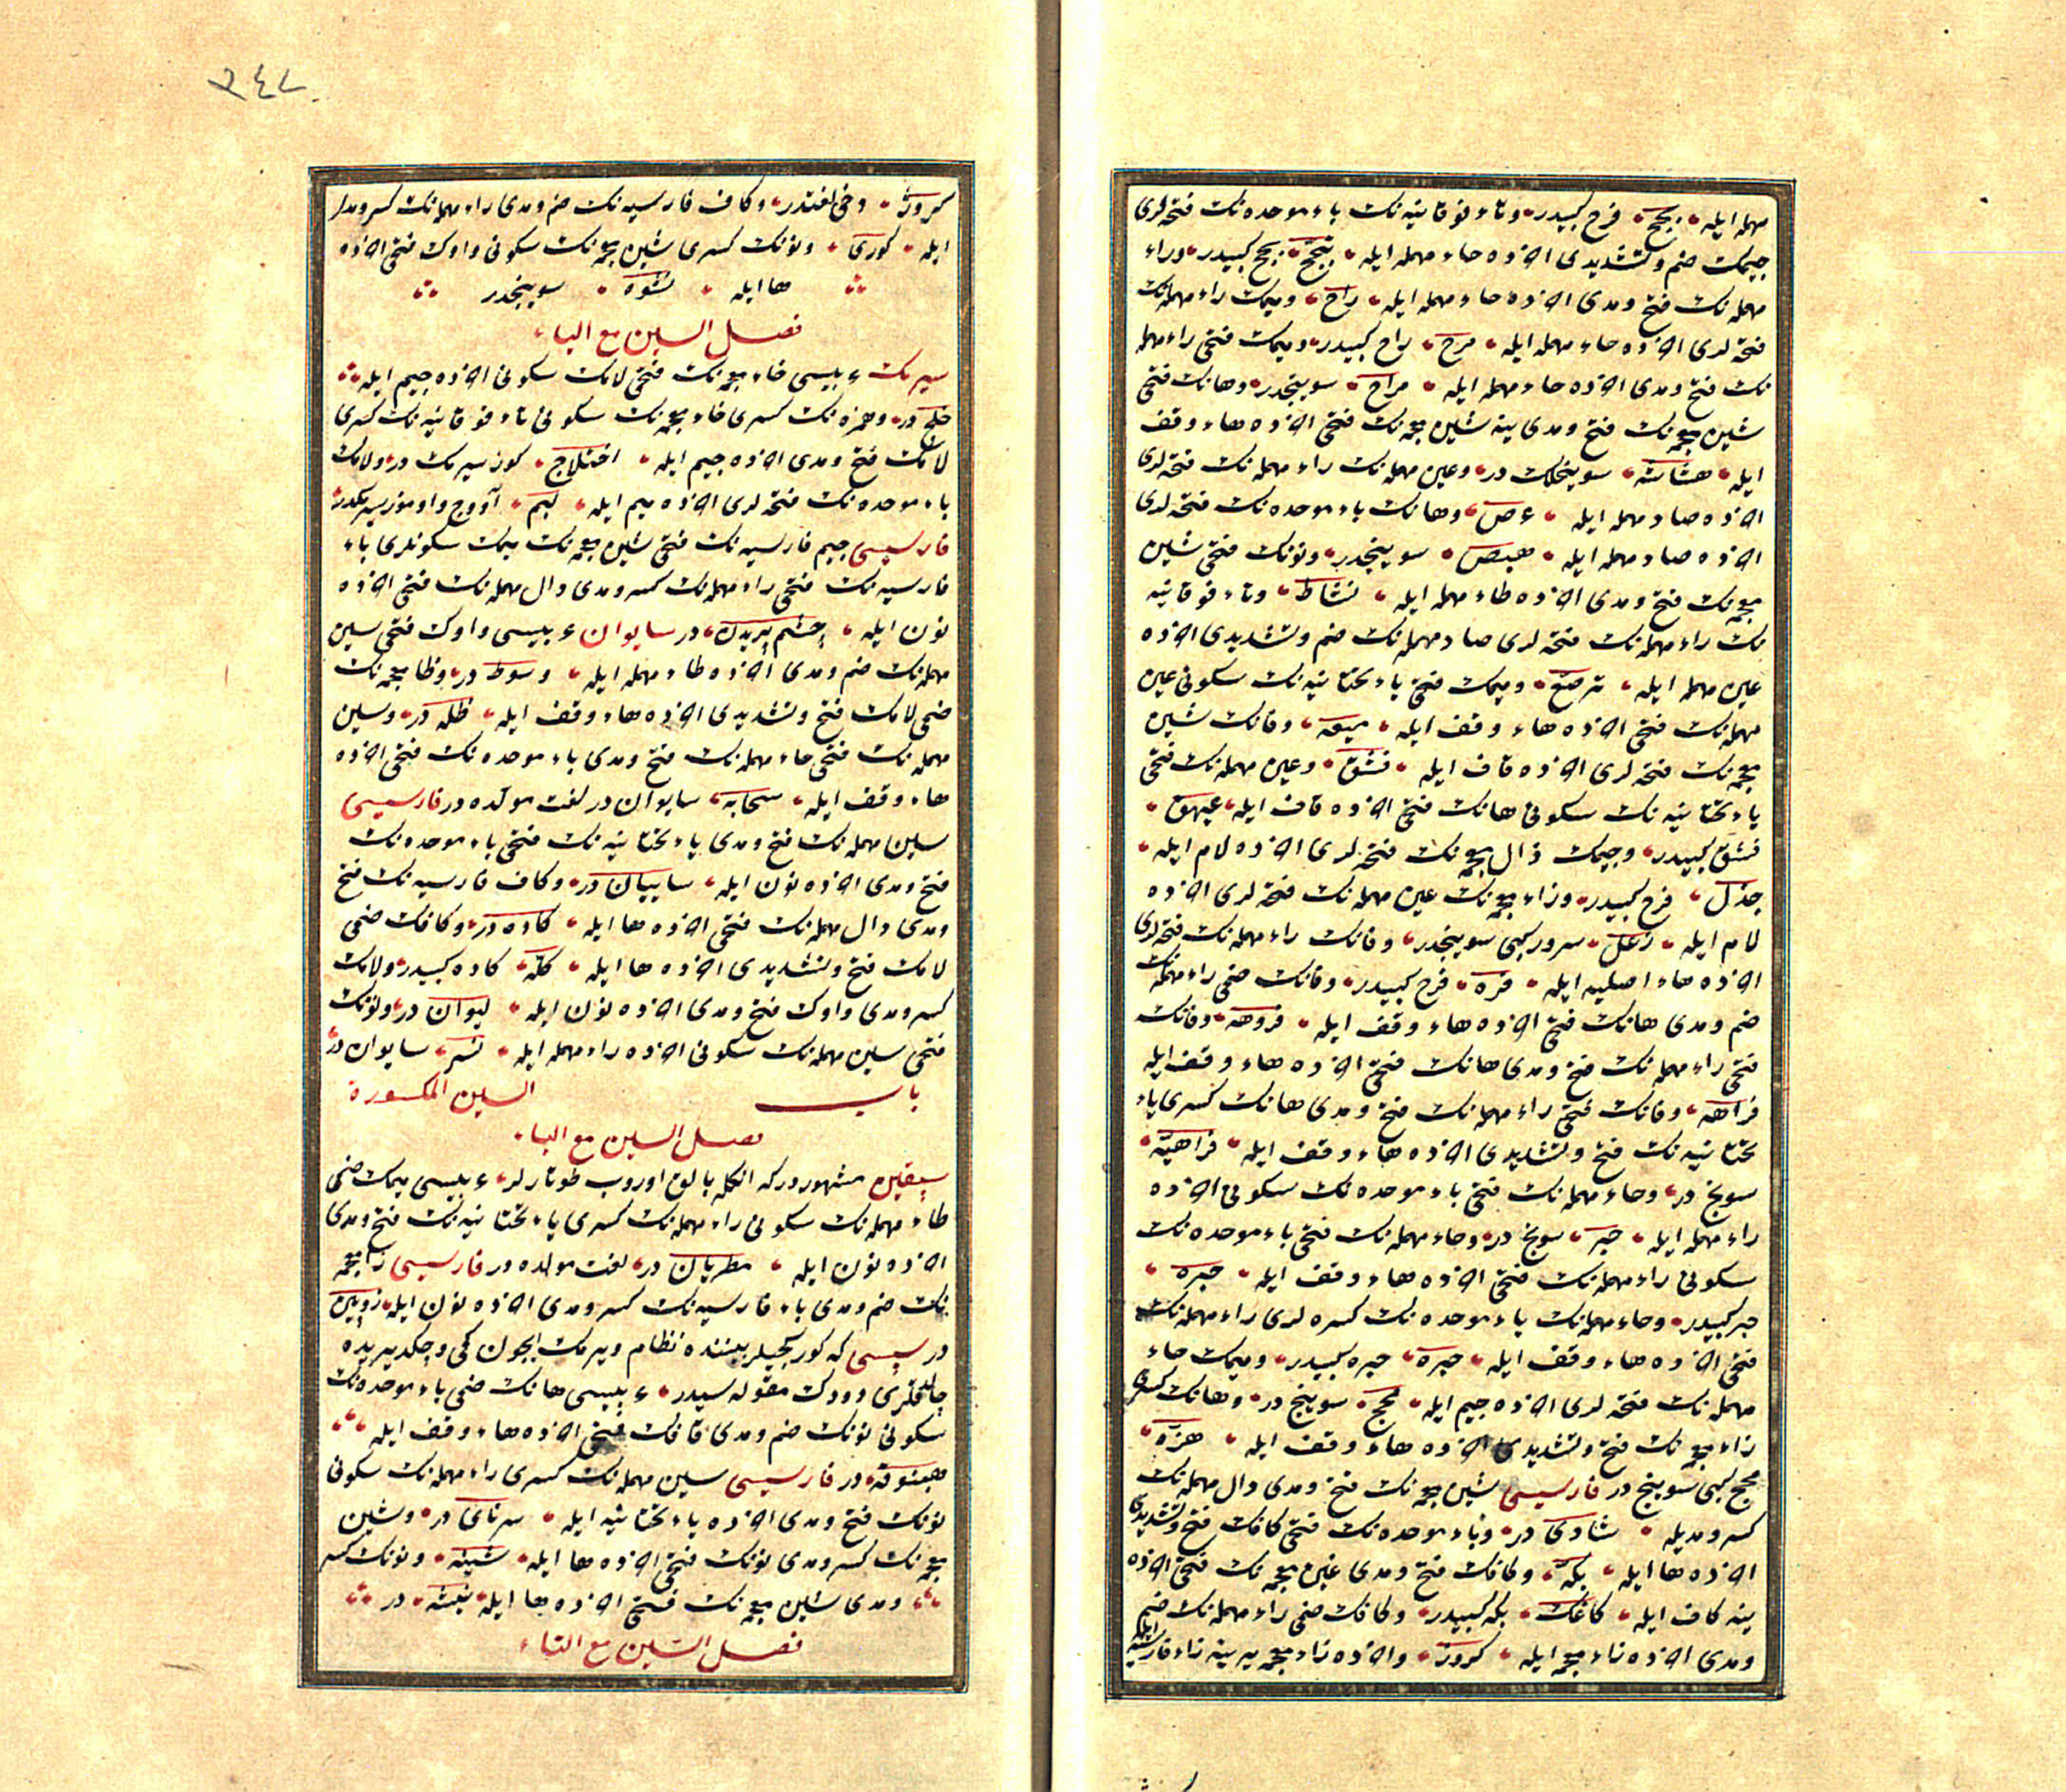 مهمله ایله بجح فرح کبیدر وتاء فوقانیه نك باء موحده نك فتحه لری
جیمك ضم وتشدیدی اخرده حاء مهمله ایله تبجح بجح کبیدر وراء
مهمله نك فتح ومدی اخرده حاء مهمله ایله راح ومیمك راء مهمله نك
فتحه لری اخرده حاء مهمله ایله مرح راح کبیدر ومیمك فتحی راء مهمله
نك فتح ومدی اخرده حاء مهمله ایله مراح سوینجدر وهانك فتحی
شین معجمه نك فتح ومدی ینه شین معجمه نك فتحی اخرده هاء وقف
ایله هشاشه سوینجلك در وعین مهمله نك راء مهمله نك فتحه لری
اخرده صاد مهمله ایله عرص وهانك باء موحده نك فتحه لری
اخرده صاد مهمله ایله هبص سوینجدر ونونك فتحی شین
معجمه نك فتح ومدی اخرده طاء مهمله ایله نشاط وتاء فوقانیه
نك راء مهمله نك فتحه لری صاد مهمله نك ضم وتشدیدی اخرده
عین مهمله ایله ترصع ومیمك فتحی یاء تحتانیه نك سکونی عین
مهمله نك فتحی اخرده هاء وقف ایله میعه وفانك شین
معجمه نك فتحه لری اخرده قاف ایله فشق وعین مهمله نك فتحی
یاء تحتانیه نك سکونی هانك فتحی اخرده قاف ایله عیهق
فشق کبیدر وجیمك ذال معجمه نك فتحه لری اخرده لام ایله
جذل فرح کبیدر وزاء معجمه نك عین مهمله نك فتحه لری اخرده
لام ایله زعل سرور کبی سوینجدر وفانك راء مهمله نك فتحه لری
اخرده هاء اصلیه ایله فره فرح کبیدر وفانك ضمی راء مهمله نك
ضم ومدی هانك فتحی اخرده هاء وقف ایله فروهه وفانك
فتحی راء مهمله نك فتح ومدی هانك فتحی اخرده هاء وقف ایله
فراهه وفانك فتحی راء مهمله نك فتح ومدی هانك کسری یاء
تحتانیه نك فتح وتشدیدی اخرده هاء وقف ایله فراهیه
سوینج در وحاء مهمله نك فتحی باء موحده نك سکونی اخرده
راء مهمله ایله حبر سوینج در وحاء مهمله نك فتحی باء موحده نك
سکونی راء مهمله نك فتحی اخرده هاء وقف ایله حبره
حبر کبیدر وحاء مهمله نك باء موحده نك کسره لری راء مهمله نك
فتحی اخرده هاء وقف ایله حبره حبره کبیدر ومیمك حاء
مهمله نك فتحه لری اخرده جیم ایله محج سوینج در وهانك کسری
زاء معجمه نك فتح وتشدیدی اخرده هاء وقف ایله هزه
محج کبی سوینج در فارسیسی شین معجمه نك فتح ومدی دال مهمله نك
کسر ومدیله شادی در وباء موحده نك فتحی کافك فتح وتشدیدی
اخرده ها ایله بکه وکافك فتح ومدی غین معجمه نك فتحی اخرده
ینه کاف ایله کاغك بکه کبیدر وکافك ضمی راء مهمله نك ضم
ومدی اخرده زاء معجمه ایله کروز واخرده زاء معجمه یرینه زاء فارسیه ایله
کروژ دخی لغتدر وکاف فارسیه نك ضم ومدی راء مهمله نك کسر ومد
ایله کوری ونونك کسری شین معجمه نك سکونی واوك فتحی اخرده
ها ایله نشوه سوینجدر
فصل السین مع الیاء
سیرمك عربیسی خاء معجمه نك فتحی لامك سکونی اخرده جیم ایله
خلج در وهمزه نك کسری خاء معجمه نك سکونی تاء فوقانیه نك کسری
لامك فتح ومدی اخرده جیم ایله اختلاج کوز سیرمك در ولامك
باء موحده نك فتحه لری اخرده میم ایله لبم آووج واوموز سیرمکدر
فارسیسی جیم فارسیه نك فتحی شین معجمه نك میمك سکونلری باء
فارسیه نك فتحی راء مهمله نك کسر ومدی دال مهمله نك فتحی اخرده
نون ایله چشم پریدن در سایوان عربیسی واوك فتحی سین
مهمله نك ضم ومدی اخرده طاء مهمله ایله وسوط در وظا معجمه نك
ضمی لامك فتح وتشدیدی اخرده هاء وقف ایله ظله در وسین
مهمله نك فتحی حاء مهمله نك فتح ومدی باء موحده نك فتحی اخرده
هاء وقف ایله سحابه سایوان در لغت مولده در فارسیسی
سین مهمله نك فتح ومدی یاء تحتانیه نك فتحی باء موحده نك
فتح ومدی اخرده نون ایله سایبان در وکاف فارسیه نك فتح
ومدی دال مهمله نك فتحی اخرده ها ایله کاده در وکافك ضمی
لامك فتح وتشدیدی اخرده ها ایله کله کاده کبیدر ولامك
کسر ومدی واوك فتح ومدی اخرده نون ایله لیوان در ونونك
فتحی سین مهمله نك سکونی اخرده راء مهمله ایله نسر سایوان در
باب السین المکسورة
فصل السین مع الباء
سپقین مشهوردر که انکله بالق اوروب طوتارلر عربیسی میمك ضمی
طاء مهمله نك سکونی راء مهمله نك کسری یاء تحتانیه نك فتح ومدی
اخرده نون ایله مطریان در لغت مولده در فارسیسی زا معجمه
نك ضم ومدی باء فارسیه نك کسر ومدی اخرده نون ایله زوپین
در سپسی که کوریجیلر بیننده نظام ویرمك ایچون کمی وچکدیریده
چالدقلری دودك مقوله سیدر عربیسی هانك ضمی باء موحده نك
سکونی نونك ضم ومدی قافك فتحی اخرده هاء وقف ایله
هبنوقه در فارسیسی سین مهمله نك کسری راء مهمله نك سکونی
نونك فتح ومدی اخرده یاء تحتانیه ایله سرنای در وشین
معجمه نك کسر ومدی نونك فتحی اخرده ها ایله شینه ونونك کسر
ومدی شین معجمه نك فتحی اخرده ها ایله نیشه در
فصل السین مع التاء
٣٤٧